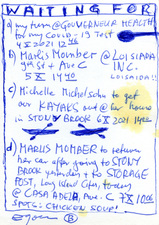 WAITING FOR
a) my turn @GOUVERNEUR HEALTH
for my COVID-19 Test
4 X 2021 12 46
b) Marlis Momber @ LOISAIDA
9th St + Ave C INC.
5 X 14 40 LOISAIDA!!
c) Michelle Michelsohn to get
our KAYAKS out @ her house
in STONY BROOK 6 X 2021
d) MARLIS MOMBER to return
her car after going to STONY
BROOK yesterday + to STORAGE
POST, Long Island City, today
@ CASA ADELA, Ave. C 7 X
SPOTS: CHICKEN SOUP!